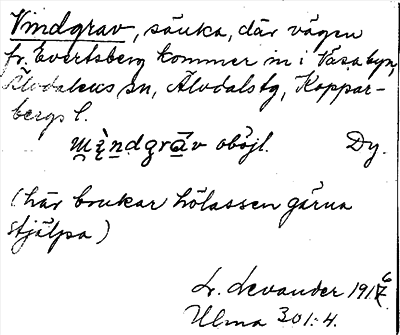 Vindgrav, sänka, där vägen
fr. Evertsberg kommer in i Vasabyn,
Älvdalens sn, Älvdals tg, Koppar-
bergs l.
wìndgrāv oböjl. Dy.
(här brukar hölassen gärna
stjälpa)
L. Levander 1916
Ulma 301:4.